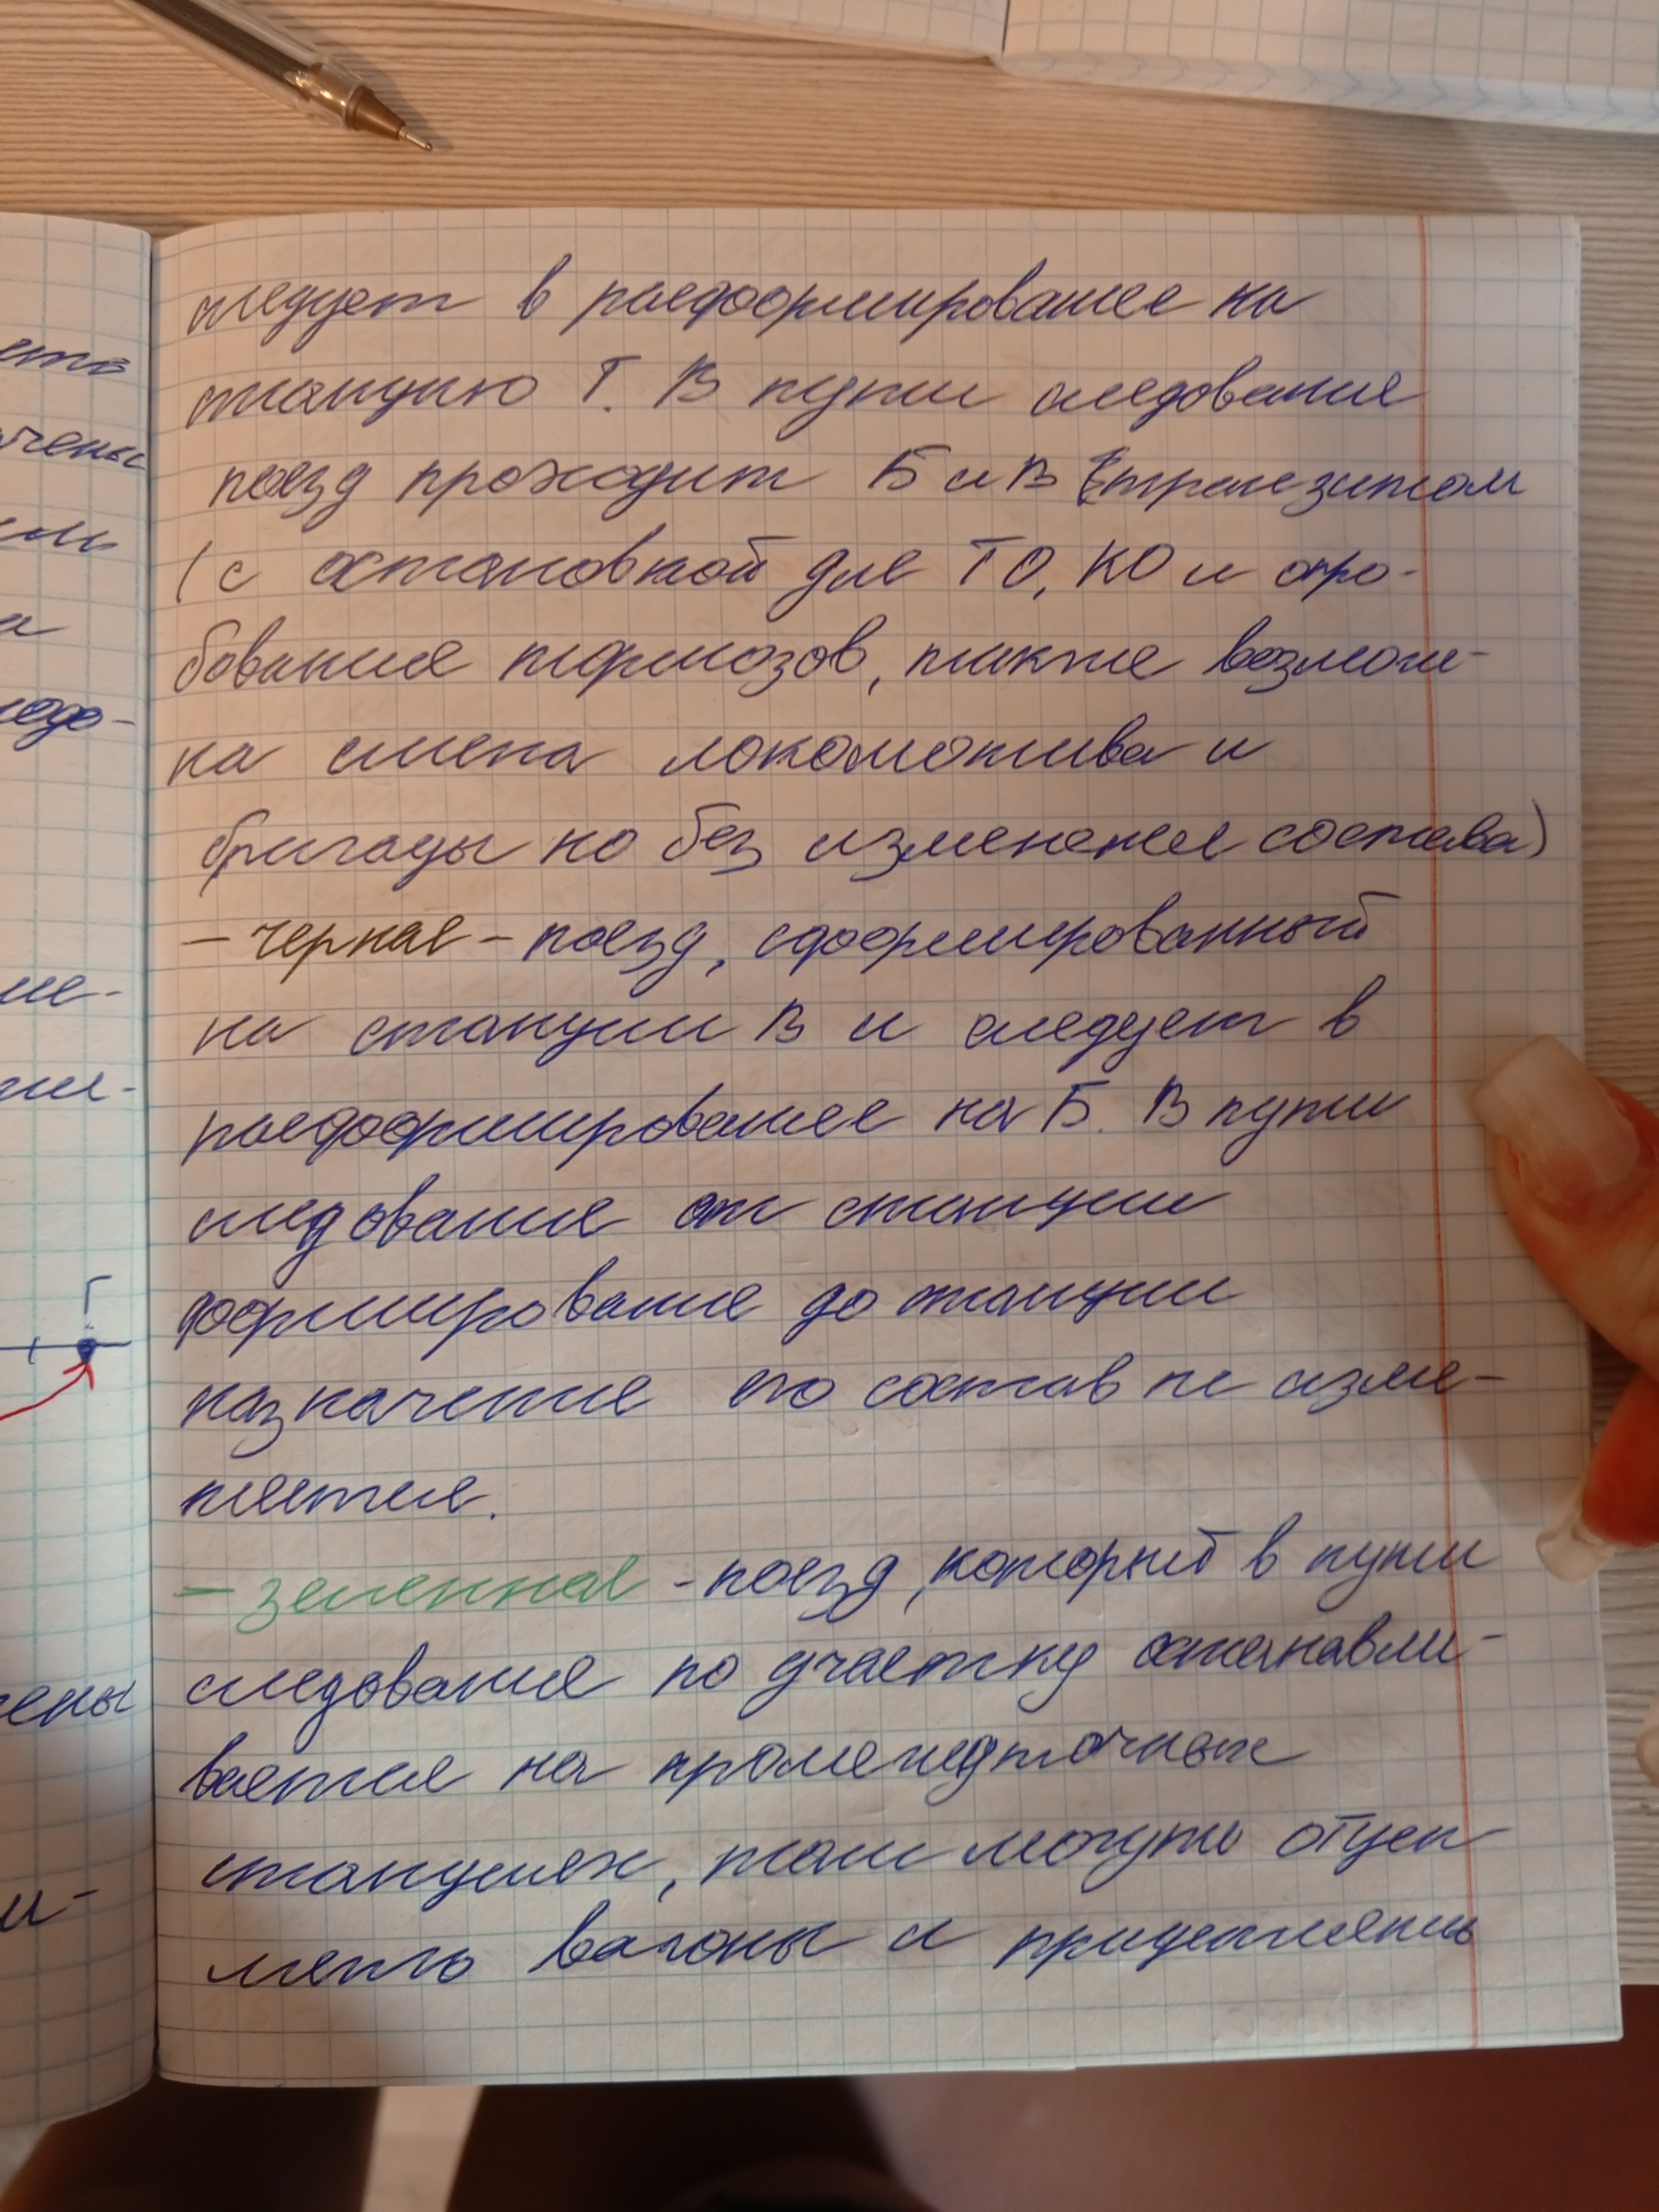 следует в расформирование на
станцию Г. В пути следования
поезд проходит Б и В транзитом
(с остановкой для ТО, КО и опро-
бования тормозов, также возмож-
на смена локомотива и
бригады но без изменения состава)
– черная – поезд, сформированный
на станции В и следует в
расформирование на Б. В пути
следования от станции
формирования до станции
назначения его состав не изме-
няется.
– зеленная – поезд, который в пути
следования по участку останавли-
вается на промежуточных
станциях, там могуть отцеп
лять вагоны и прицеплять
чены
Г